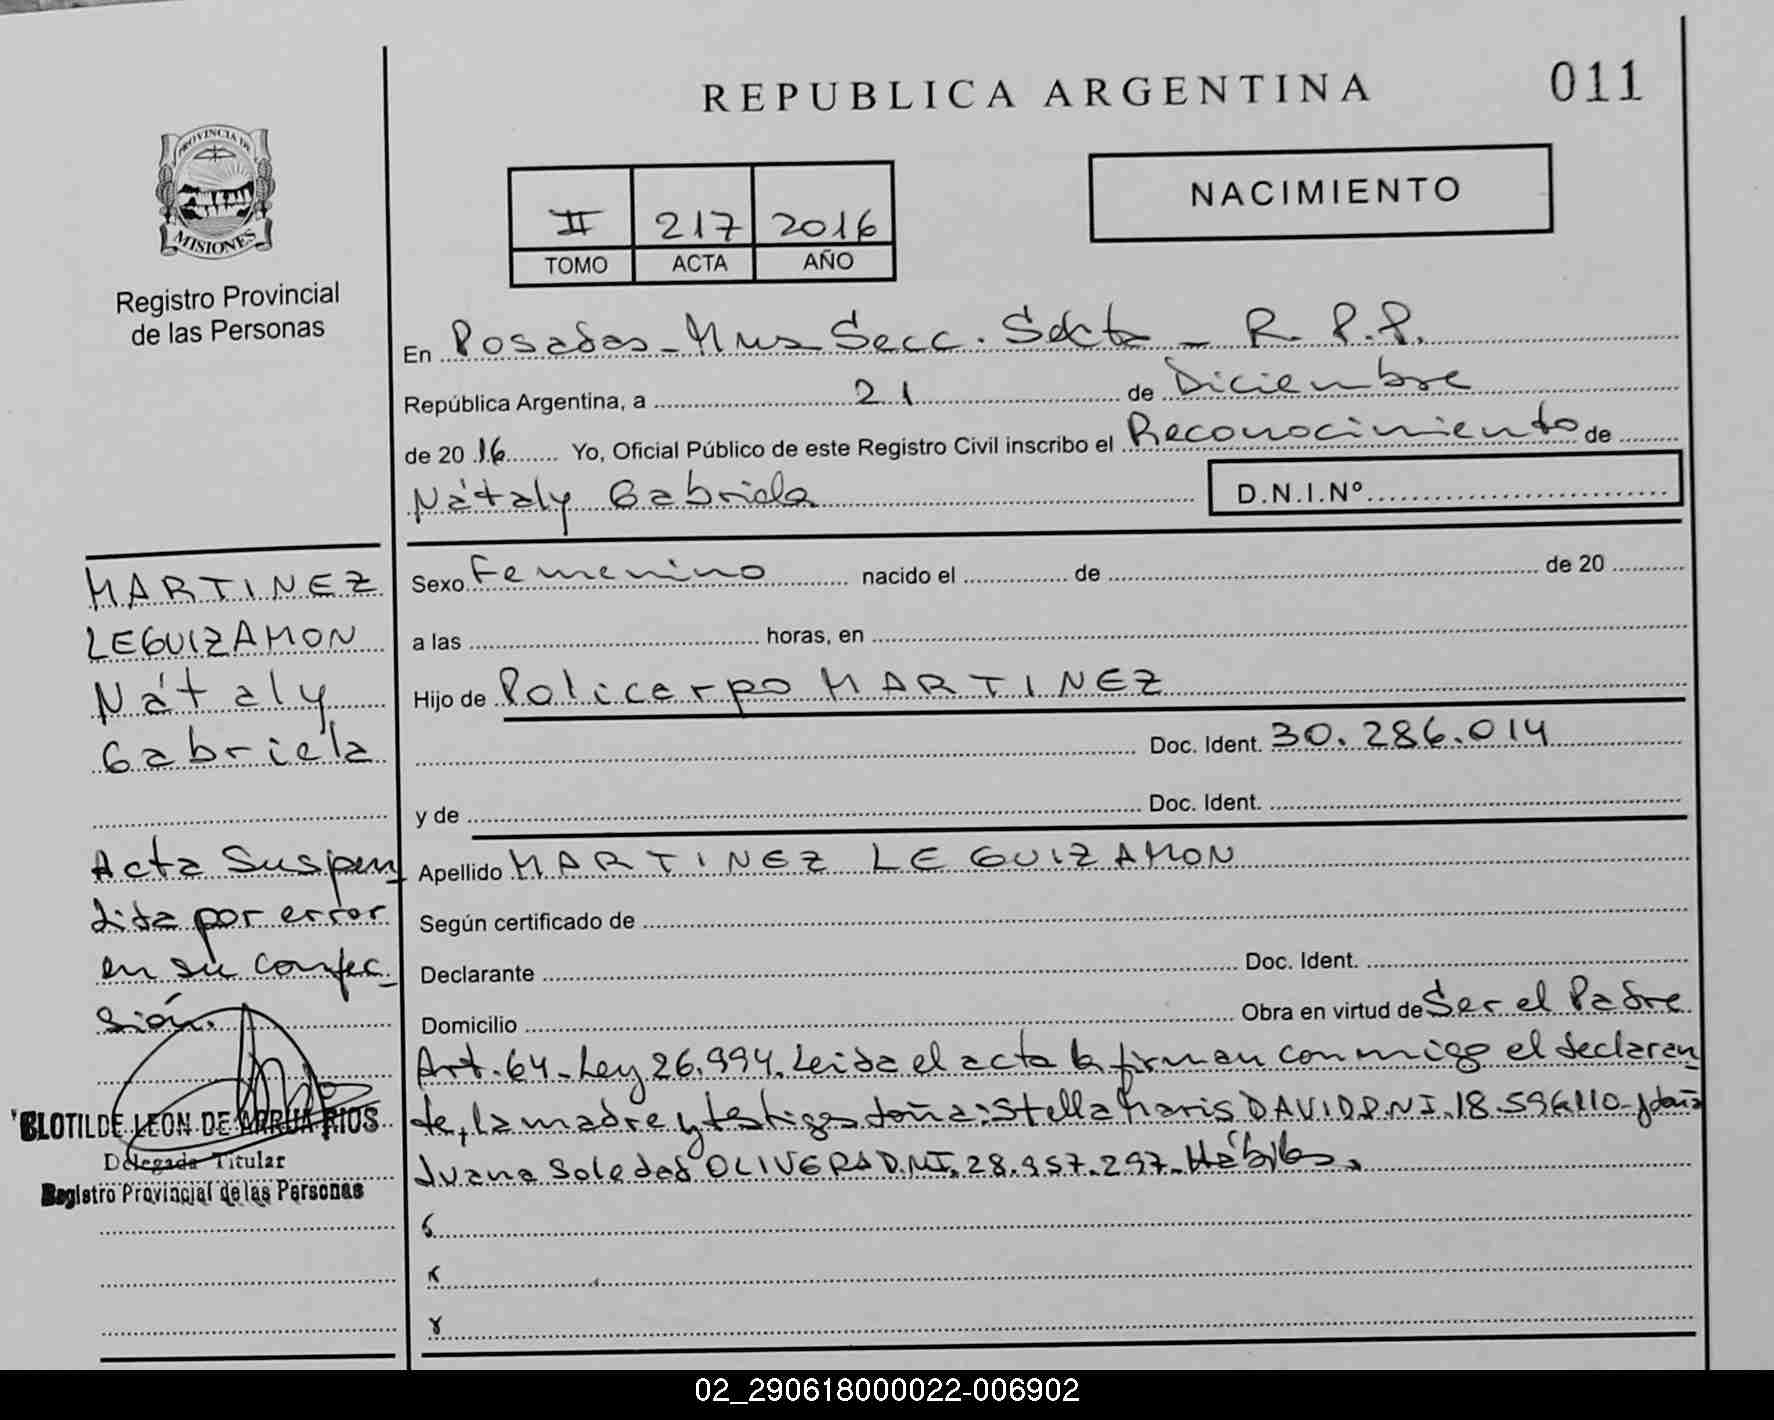 REPUBLICA ARGENTINA
011
PROVINCIA DE
MISIONES
Registro Provincial
de las Personas
II 217 2016
TOMO ACTA AÑO
NACIMIENTO
En Posadas - Mnes Secc. Sexta - R. P.P.
República Argentina, a 21 de Diciembre
de 20 16 Yo, Oficial Público de este Registro Civil inscribo el Reconocimiento de
Nátaly Gabriela D.N.I.Nº
Sexo Femenino nacido el de de 20
a las horas, en
Hijo de Policarpo MARTINEZ
Doc. Ident. 30.286.014
y de Doc. Ident.
Apellido MARTINEZ LEGUIZAMON
Según certificado de
Declarante Doc. Ident.
Domicilio Obra en virtud de Ser el Padre
Art. 64 - Ley 26.994. Leida el acta la firman conmigo el declaran
te, la madre y testigos doña: Stella Maris DAVID D.N.I. 18.596.110 y doña
Juana Soledad OLIVERA D.N.I. 28.957.297 - Hábiles.
MARTINEZ
LEGUIZAMON
Nátaly
Gabriela
Acta Suspen
dida por error
en su confec
sión.
CLOTILDE LEON DE ARRUA RIOS
Delegada Titular
Registro Provincial de las Personas
02_290618000022-006902